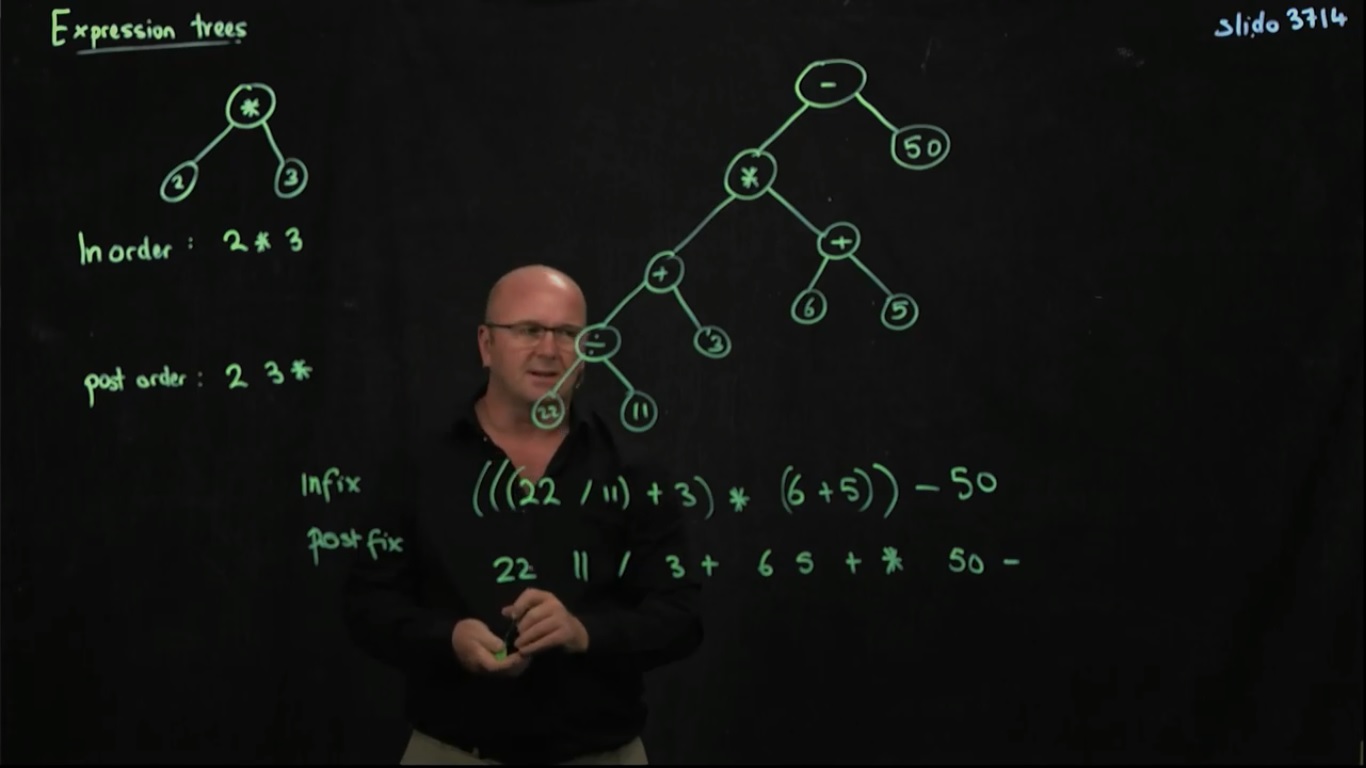 Expression trees
slido 3714
*
2 3
In order : 2 * 3
post order : 2 3 *
-
50
*
+
+
6 5
÷
3
22 11
Infix (((22 / 11) + 3) * (6 + 5)) - 50
postfix 22 11 / 3 + 6 5 + * 50 -